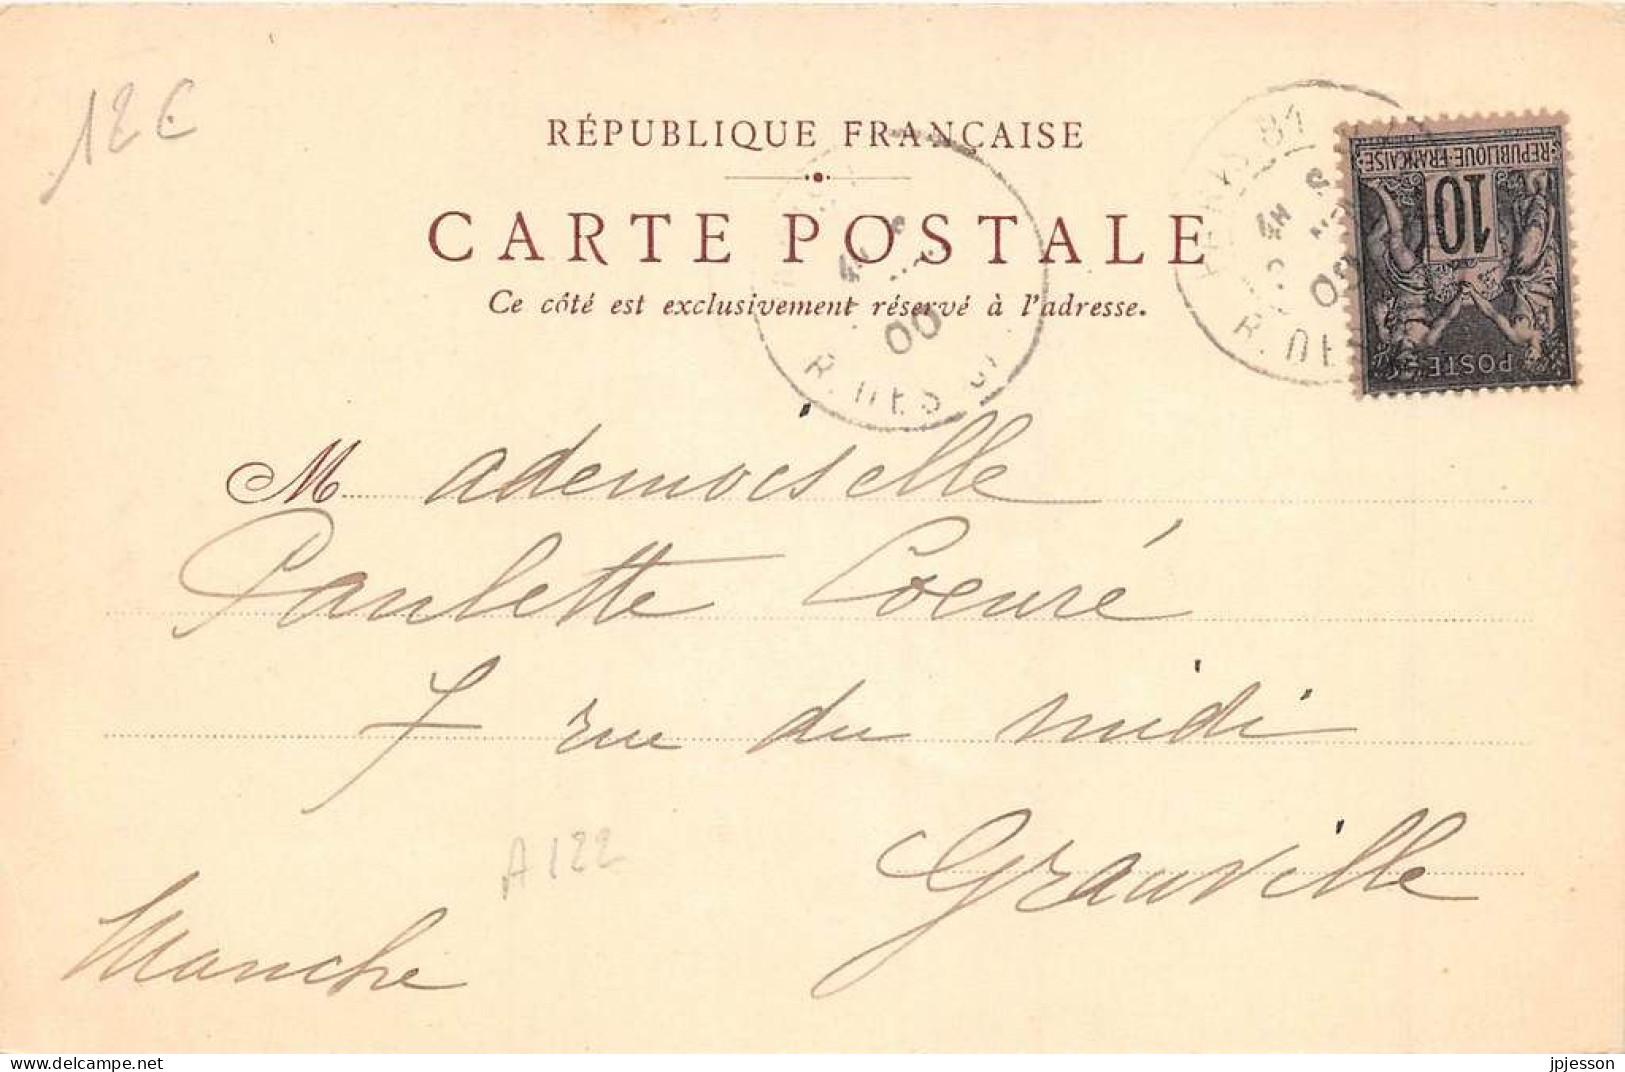 12€
RÉPUBLIQUE FRANÇAISE
CARTE POSTALE
Ce côté est exclusivement réservé à l'adresse.
PARIS 81
4H
00
R. DES
4
00
R. DES
RÉPUBLIQUE-FRANÇAISE
10
POSTE
Mademoiselle
Paulette Coeuré
7 rue du midi
Granville
A122
Manche
delcampe.net
jpjesson